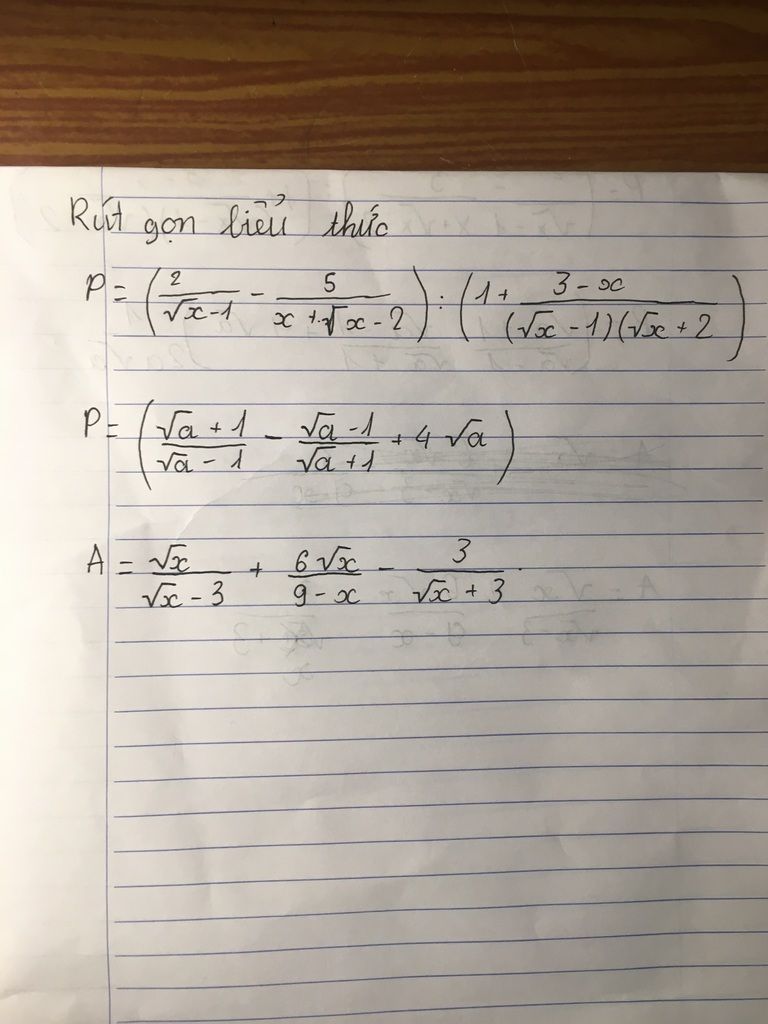 Rút gọn biểu thức
P = (2/(√x-1) - 5/(x+√x-2)) : (1 + (3-x)/((√x-1)(√x+2))
P = ((√a+1)/(√a-1) - (√a-1)/(√a+1) + 4√a)
A = √x/(√x-3) + 6√x/(9-x) - 3/(√x+3).